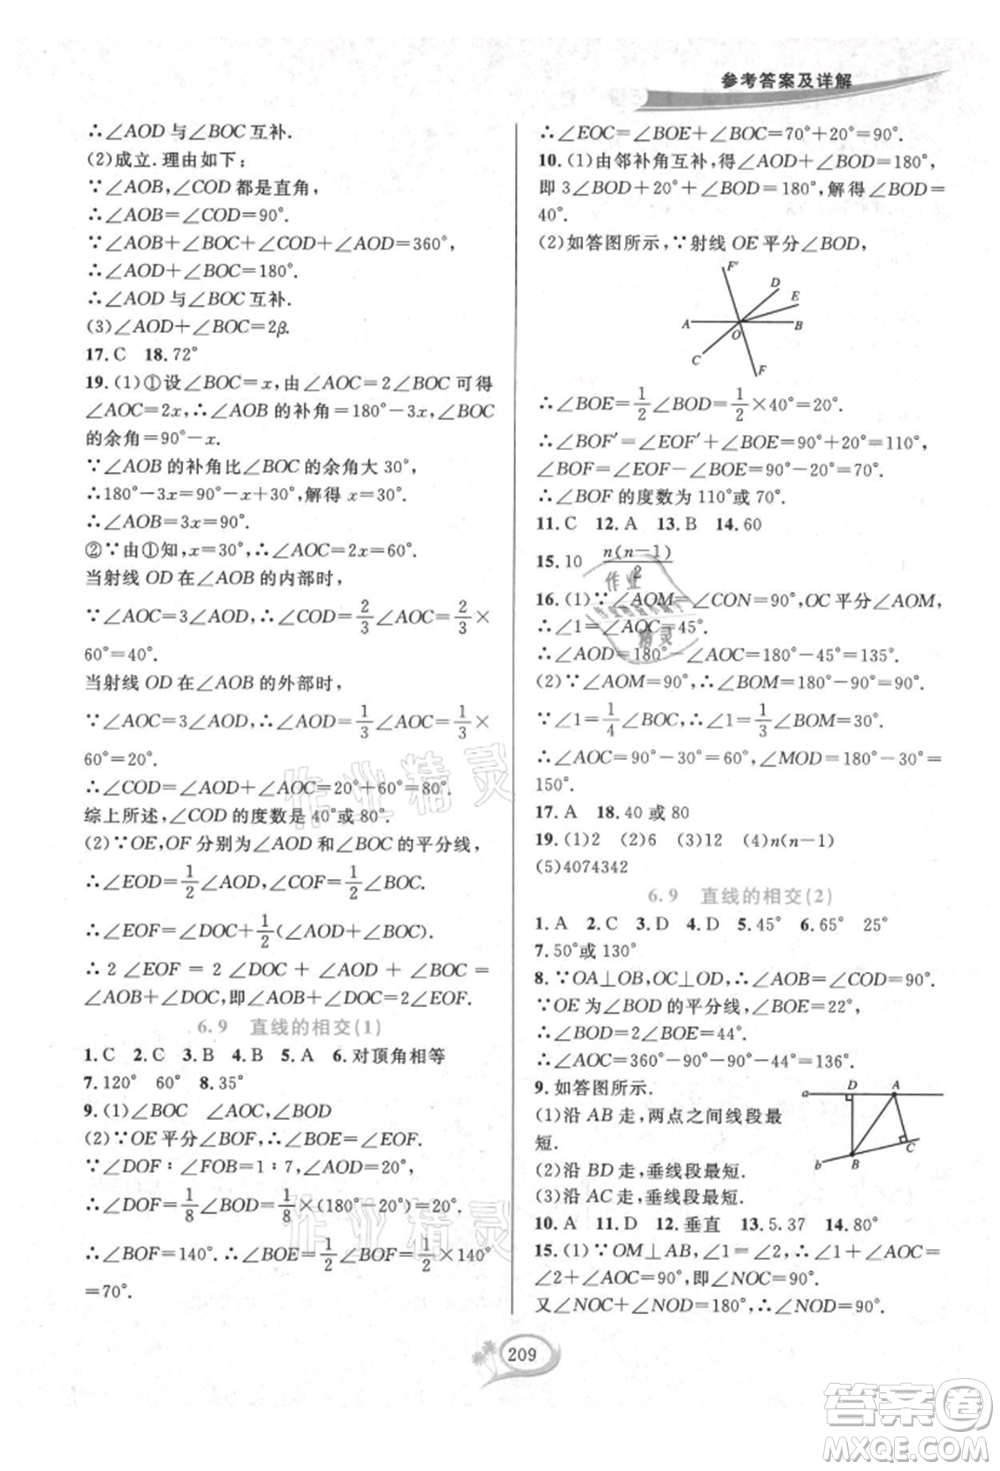 参考答案及详解
∴∠AOD与∠BOC互补.
(2)成立.理由如下:
∵∠AOB,∠COD都是直角,
∴∠AOB=∠COD=90°.
∵∠AOB+∠BOC+∠COD+∠AOD=360°,
∴∠AOD+∠BOC=180°.
∴∠AOD与∠BOC互补.
(3)∠AOD+∠BOC=2β.
17.C 18.72°
19.(1)①设∠BOC=x,由∠AOC=2∠BOC可得
∠AOC=2x,∴∠AOB的补角=180°-3x,∠BOC
的余角=90°-x.
∵∠AOB的补角比∠BOC的余角大30°,
∴180°-3x=90°-x+30°,解得x=30°.
∴∠AOB=3x=90°.
②∵由①知,x=30°,∴∠AOC=2x=60°.
当射线OD在∠AOB的内部时,
∵∠AOC=3∠AOD,∴∠COD=2/3∠AOC=2/3×
60°=40°.
当射线OD在∠AOB的外部时,
∵∠AOC=3∠AOD,∴∠AOD=1/3∠AOC=1/3×
60°=20°.
∴∠COD=∠AOD+∠AOC=20°+60°=80°.
综上所述,∠COD的度数是40°或80°.
(2)∵OE,OF分别为∠AOD和∠BOC的平分线,
∴∠EOD=1/2∠AOD,∠COF=1/2∠BOC.
∴∠EOF=∠DOC+1/2(∠AOD+∠BOC).
∴2∠EOF=2∠DOC+∠AOD+∠BOC=
∠AOB+∠DOC,即∠AOB+∠DOC=2∠EOF.
6.9 直线的相交(1)
1.C 2.C 3.B 4.B 5.A 6.对顶角相等
7.120° 60° 8.35°
9.(1)∠BOC ∠AOC,∠BOD
(2)∵OE平分∠BOF,∴∠BOE=∠EOF.
∵∠DOF:∠BOF=1:7,
∴∠DOF=1/8∠BOD=1/8×(180°-20°)=20°.
∴∠BOF=140°.∴∠BOE=1/2∠BOF=1/2×140°
=70°.
∴∠EOC=∠BOE+∠BOC=70°+20°=90°.
10.(1)由邻补角互补,得∠AOD+∠BOD=180°,
即3∠BOD+20°+∠BOD=180°,解得∠BOD=
40°.
(2)如答图所示,∵射线OE平分∠BOD,
F′
D
E
A
O
B
C
F
∴∠BOE=1/2∠BOD=1/2×40°=20°.
∴∠BOF′=∠EOF′+∠BOE=90°+20°=110°,
∠BOF=∠EOF-∠BOE=90°-20°=70°.
∴∠BOF的度数为110°或70°.
11.C 12.A 13.B 14.60
15.10 n(n-1)/2
16.(1)∵∠AOM=∠CON=90°,OC平分∠AOM,
∴∠1=∠AOC=45°.
∴∠AOD=180°-∠AOC=180°-45°=135°.
(2)∵∠AOM=90°,∴∠BOM=180°-90°=90°.
∵∠1=1/4∠BOC,∴∠1=1/3∠BOM=30°.
∴∠AOC=90°-30°=60°,∠MOD=180°-30°=
150°.
17.A 18.40或80
19.(1)2 (2)6 (3)12 (4)n(n-1)
(5)4074342
6.9 直线的相交(2)
1.A 2.C 3.D 4.D 5.45° 6.65° 25°
7.50°或130°
8.∵OA⊥OB,OC⊥OD,∴∠AOB=∠COD=90°.
∵OE为∠BOD的平分线,∠BOE=22°,
∴∠BOD=2∠BOE=2×22°=44°.
∴∠AOC=360°-90°-90°-44°=136°.
9.如答图所示.
(1)沿AB走,两点之间线段最
短.
(2)沿BD走,垂线段最短.
(3)沿AC走,垂线段最短.
a
D
A
b
B
C
10.A 11.D 12.垂直 13.5.37 14.80°
15.(1)∵OM⊥AB,∴∠AOM=∠1+∠AOC=90°.
∴∠2+∠AOC=90°,即∠NOC=90°.
又∠NOC+∠NOD=180°,∴∠NOD=90°.
209
作业精灵
作业精灵
作业
精灵
答案卷
MXQE.COM